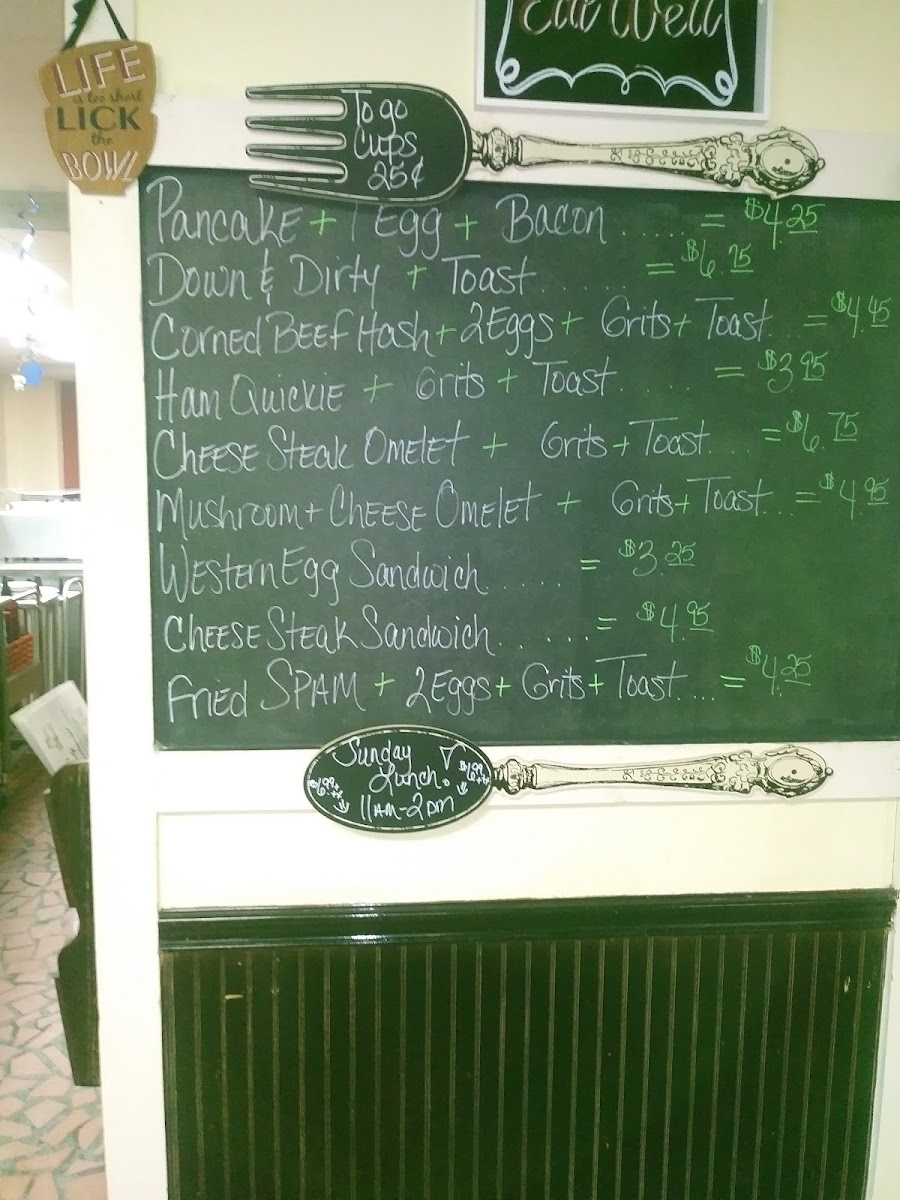 Eat Well
LIFE
is too short
LICK
the
BOWL
To go
Cups
25¢
Pancake + 1 Egg + Bacon ...... = $4.25
Down & Dirty + Toast ....... = $6.75
Corned Beef Hash + 2 Eggs + Grits + Toast ... = $4.45
Ham Quickie + Grits + Toast ..... = $3.95
Cheese Steak Omelet + Grits + Toast .... = $6.75
Mushroom + Cheese Omelet + Grits + Toast ... = $4.95
Western Egg Sandwich ...... = $3.25
Cheese Steak Sandwich ...... = $4.95
Fried SPAM + 2 Eggs + Grits + Toast .... = $4.25
Sunday
Lunch.
11AM-2PM